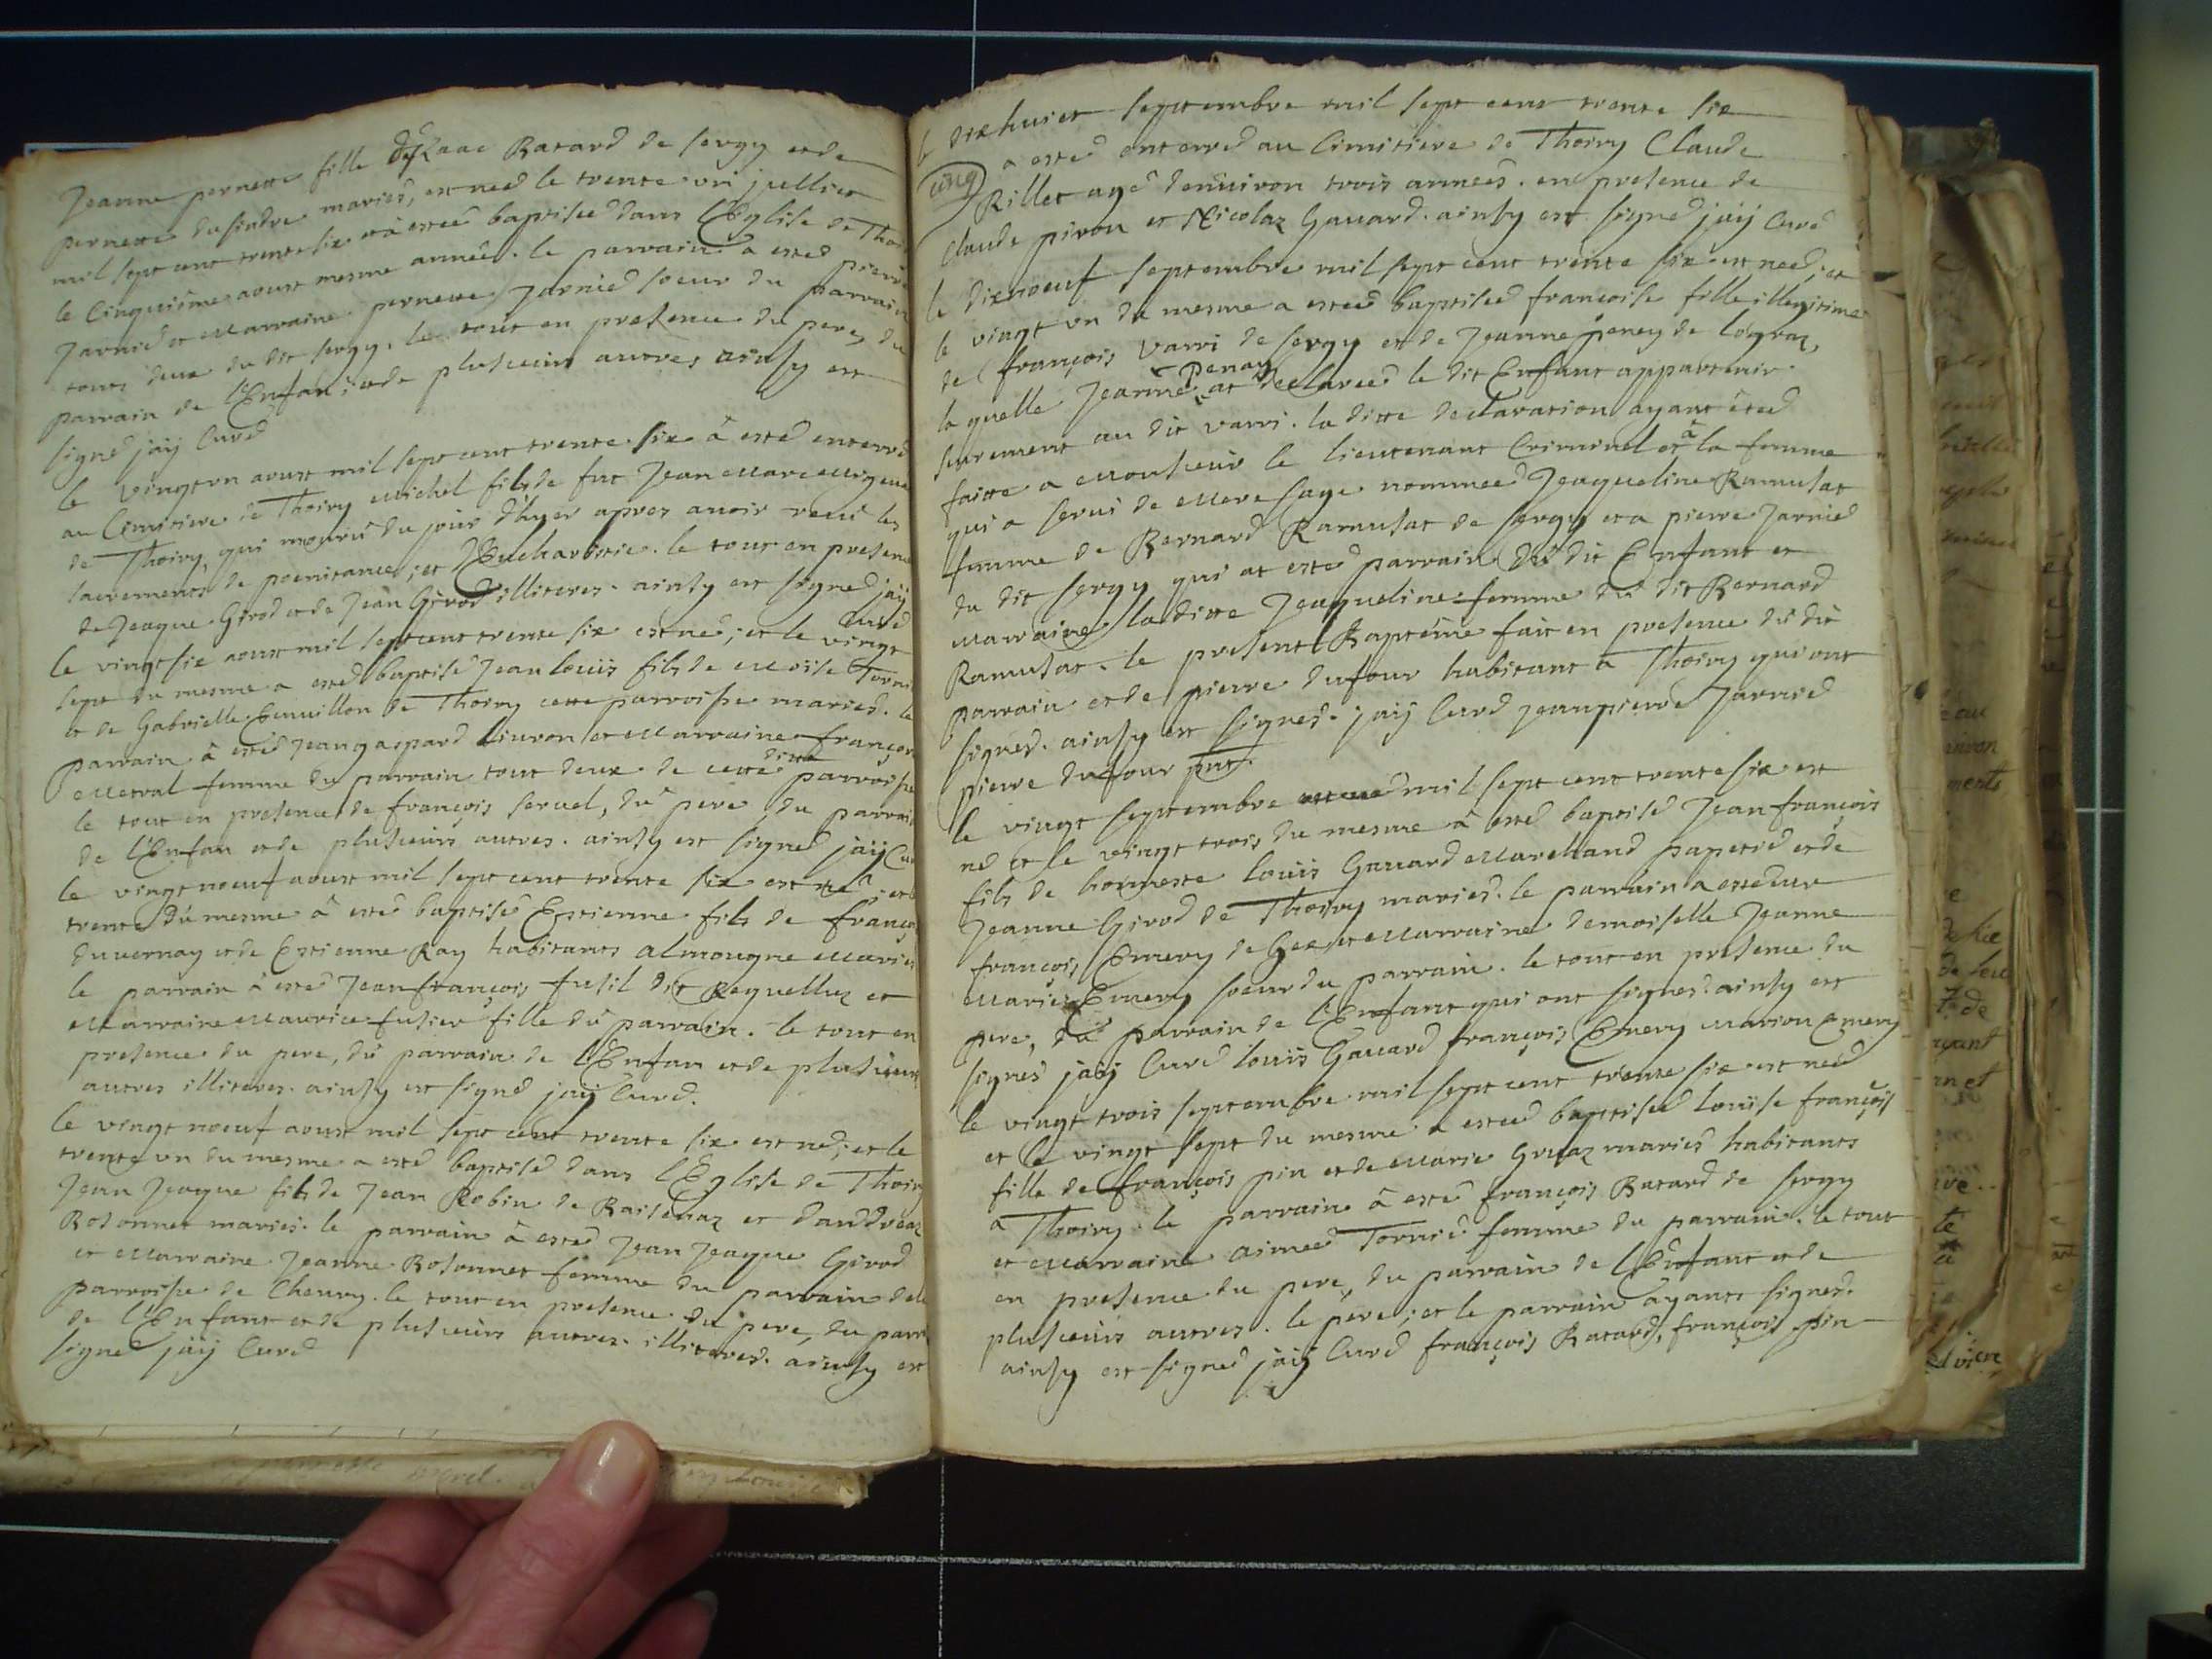 Jeanne pernette fille d'Isaac Batard de sergy et de
pernette du sindre mariés, est neé le trente un juilliet
mil sept cent trente six et à esteé baptiseé dans l'Eglise de Thoi
le Cinquiême aoust mesme anneé. le parrain à esté pierre
Jarnié et Marraine pernette Jarnié soeur du parrain
tous deux du dit sergy. le tout en presence du pere, du
parrain de l'Enfan; et de plusieurs autres ainsy est
signé jaij Curé
le vingt un aoust mil sept cent trente six à esté enterré
au Cimitiere de Thoiry Michel fils de fut Jean Marc
de Thoiry, qui mouru du jour d'hyer apres auoir receu les
sacrements de poenitance; et l'Eucharistie. le tout en presence
de Jeaque Girod et de Jean Girod illiteres. ainsy est signé jaij
Curé
le vingt six aoust mil sept cent trente six est né; et le vingt
sept du mesme a esté baptisé Jean louis fils de Moïse Torni
et de Gabrielle Emuillon de Thoiry cette parroisse mariés. le
parrain à esté Jean gaspard Liuron et Marraine françoise
Metral femme du parrain tout deux de cette ditte parroisse
le tout en presence de françois seruel, du pere, du parrain
de l'Enfan et de plusieurs autres. ainsy est signé jaij Cu
le vingt noeuf aoust mil sept cent trente six est né; et le
trente du mesme à esté baptisé Estienne fils de françois
duuernay et de Estienne Ray habitants almougne mariés
le parrain à esté Jean françois fusil dit Requelluz et
Marraine Maurice fusier fille du parrain. le tout en
presence du pere, du parrain de l'Enfan et de plusieurs
autres illiteres. ainsy est signé jaij Curé.
le vingt noeuf aoust mil sept cent trente six est né; et le
trente un du mesme a esté baptisé dans l'Eglise de Thoiry
Jean Jeaque fils de Jean Robin de Raisenaz et d'andreaz
Rosonnet mariés. le parrain à esté Jean Jeaque Girod
et Marraine Jeanne Rosonnet femme du parrain de la
parroisse de Cheury. le tout en presence du pere, du parr
de l'Enfant et de plusieurs autres illiterés. ainsy est
signé jaij Curé
le dixhuict septembre mil sept cent trente six
a esté enterré au Cimitiere de Thoiry Claude
cinq
Rillet agé d'enuiron trois anneés. en presence de
Claude piron et Nicolaz Gauard. ainsy est signé jaij Curé
le dixnoeuf septembre mil sept cent trente six est neé; et
le vingt un du mesme a esteé baptiseé françoise fille illegitime
de françois Varri de sergy et de Jeanne peney de lograz,
la quelle Jeanne Penay at declareé le dit Enfant appartenir
seurement au dit varri. la ditte declaration ayant êteé
faitte a Monsieur le lieutenant Criminel et à la femme
qui a serui de Mere sage nommeé Jeaqueline Ramusat
femme de Bernard Ramusat de sergy et a pierre Jarnié
du dit sergy qui at esté parrain du dit Enfant et
marraine la ditte Jeaqueline femme du dit Bernard
Ramusat. le present Baptême fait en presence du dit
parrain et de pierre dufour habitant à Thoiry qui ont
signes. ainsy est signes. jaij Curé Jean pierre Jarnié
pierre dufour pnt.
le vingt septembre mil sept cent trente six est
né et le vingt trois du mesme à esté baptisé Jean françois
fils de honneste louis Gauard Marchand papetié et de
Jeanne Girod de Thoiry mariés. le parrain a esté Sieur
françois Emery de Gex et Marraine demoiselle Jeanne
Marie Emery soeur du parrain. le tout en presence du
pere, du parrain de l'Enfant qui ont signes. ainsy est
signes jaij Curé louis Gauard françois Emery Marion Emery
le vingt trois septembre mil sept cent trente six est neé
et le vingt sept du mesme a esteé baptiseé louise françois
fille de françois pin et de Marie Gruaz mariés habitants
à Thoiry le parrain à esté françois Batard de sergy
et Marraine aimeé Tornié femme du parrain. le tout
en presence du pere, du parrain de l'Enfant et de
plusieurs autres. le pere; et le parrain ayants signes.
ainsy est signé jaij Curé françois Batard, françois pin